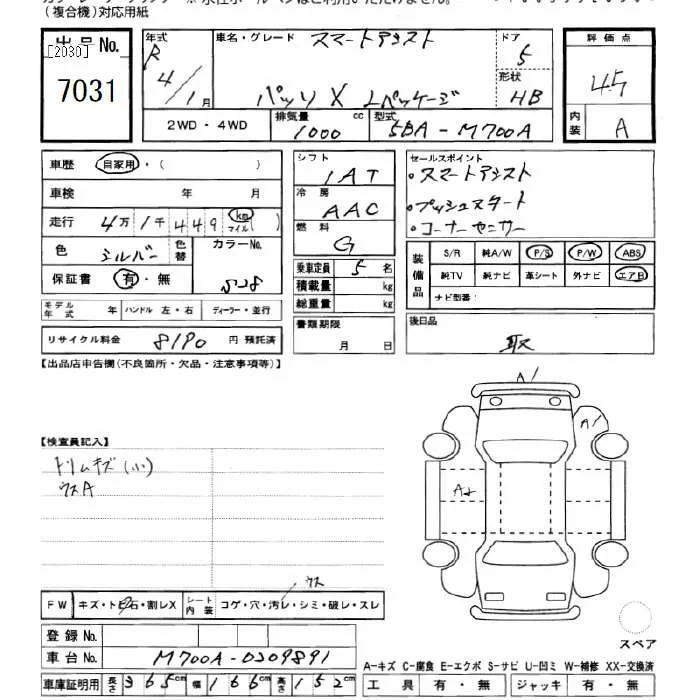 (複合機)対応用紙
出品No.
[2030]
7031
年式
R 4/1月
車名・グレード スマートアシスト
パッソ X Lパッケージ
ドア 5
形状 HB
評価点
4.5
内装 A
2WD・4WD
排気量 1000 cc
型式 5BA-M700A
車歴 自家用・( )
車検 年 月
走行 4万1千449 km マイル( )
色 シルバー
色替
カラーNo. S28
保証書 有・無
モデル年式 年
ハンドル 左・右
ディーラー・並行
リサイクル料金 8190 円 預託済
シフト 1AT
冷房 AAC
燃料 G
乗車定員 5 名
積載量 kg
総重量 kg
書類期限
月 日
セールスポイント
・スマートアシスト
・プッシュスタート
・コーナーセンサー
装備品
S/R 純A/W P/S P/W ABS
純TV 純ナビ 革シート 外ナビ エアB
ナビ型番:
後日品
取
【出品店申告欄(不良箇所・欠品・注意事項等)】
【検査員記入】
トリムキズ(小)
ウスA
A1
A1
A2
FW キズ・トビ石・割レX
シート内装 コゲ・穴・汚レ・シミ・破レ・スレ
ウス
登録No.
車台No. M700A-0209891
車庫証明用 長さ 365cm 幅 166cm 高さ 152cm
スペア
A-キズ C-腐食 E-エクボ S-サビ U-凹ミ W-補修 XX-交換済
工具 有・無 ジャッキ 有・無